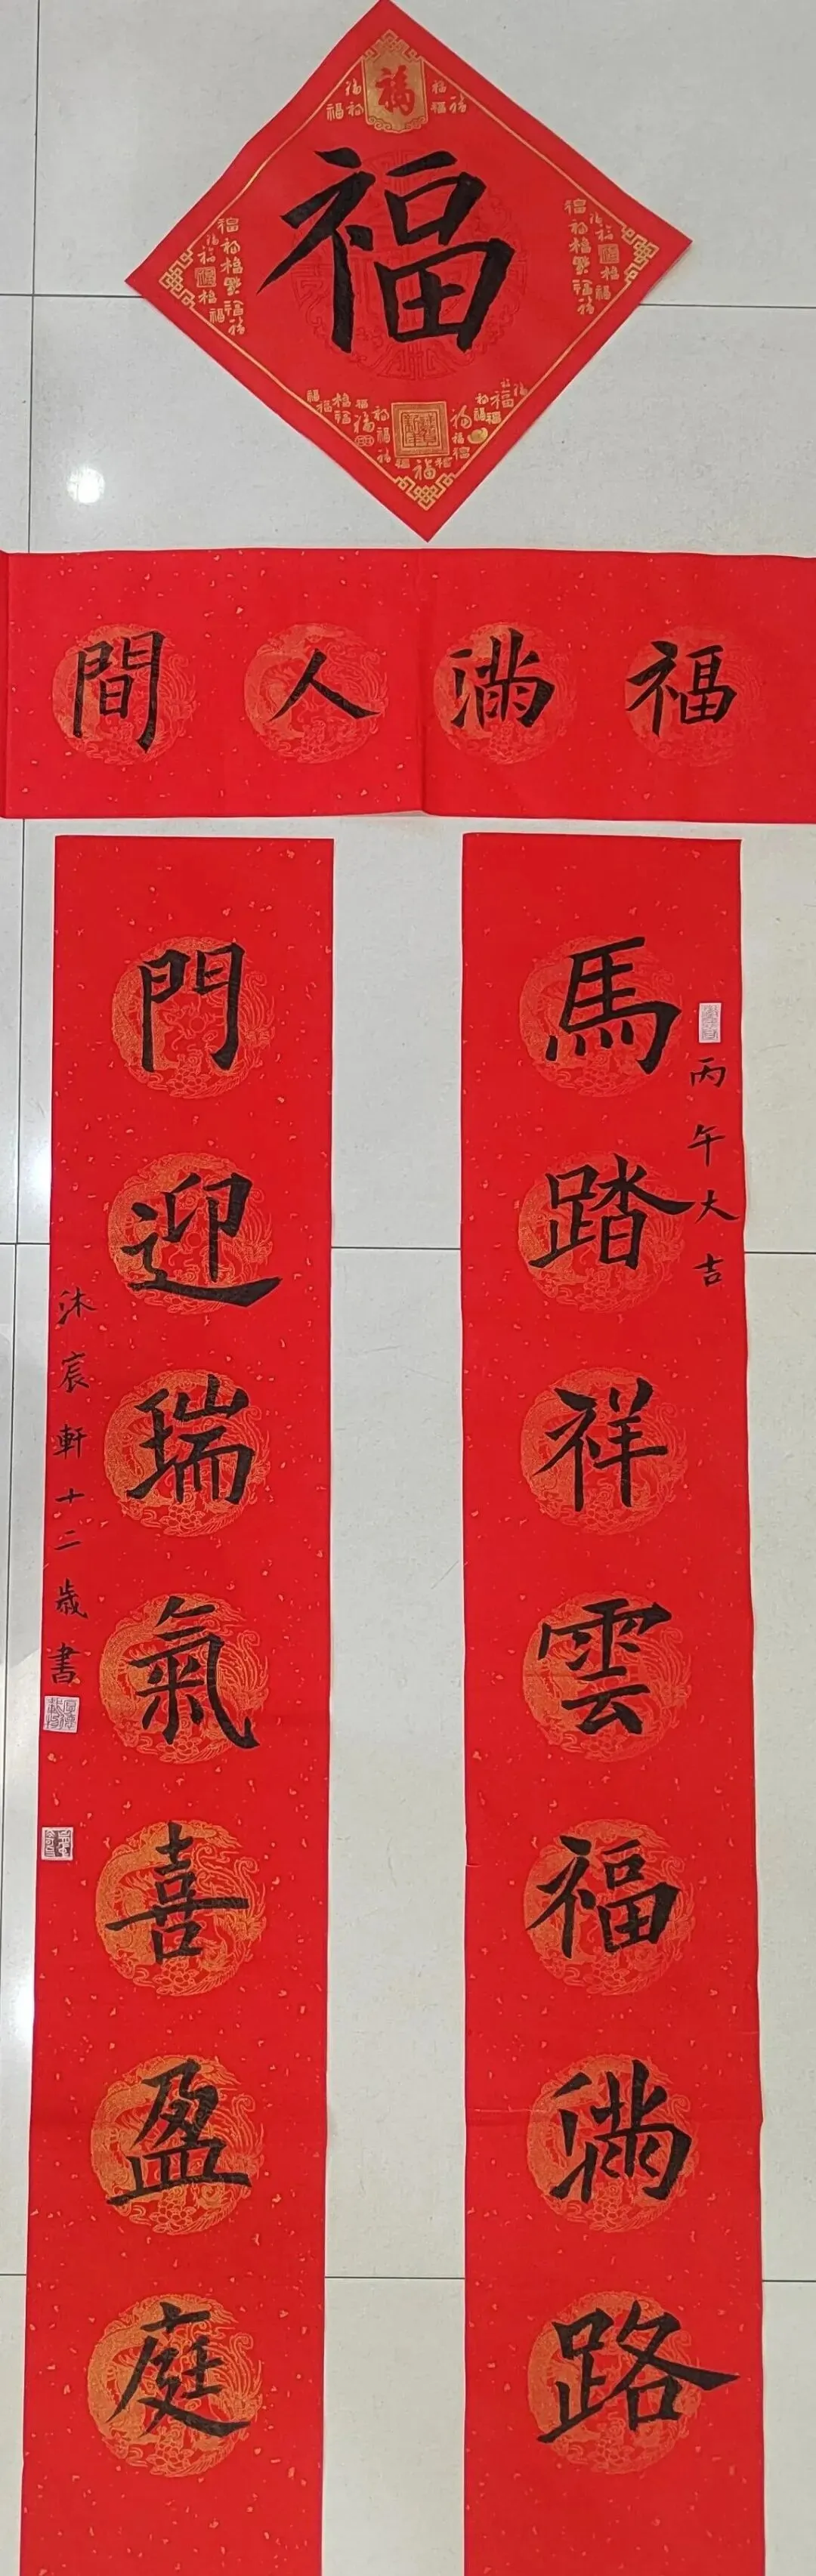 福
福
福滿人間
馬踏祥雲福滿路
丙午大吉
門迎瑞氣喜盈庭
沐宸軒十二歲書